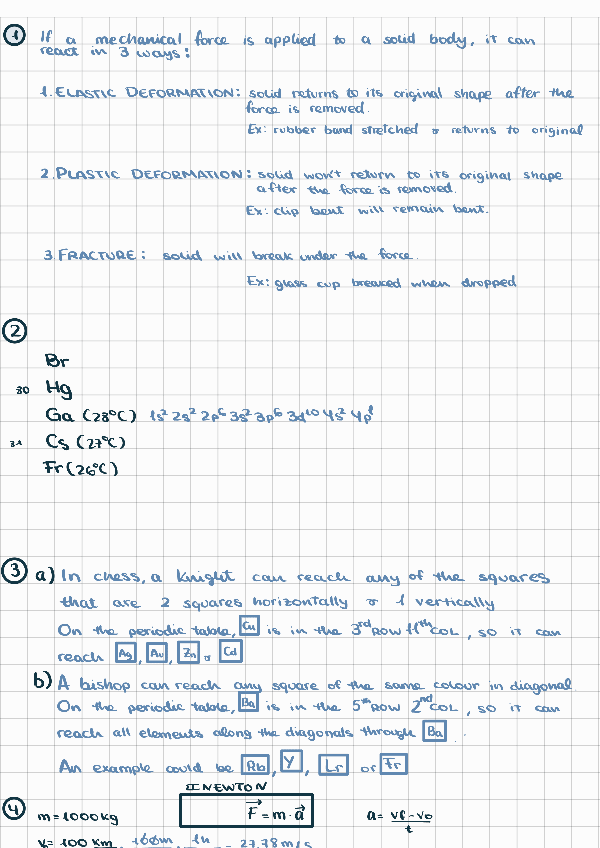 1 If a mechanical force is applied to a solid body, it can
react in 3 ways:
1. ELASTIC DEFORMATION: solid returns to its original shape after the
force is removed.
Ex: rubber band stretched & returns to original
2. PLASTIC DEFORMATION: solid won't return to its original shape
after the force is removed.
Ex: clip bent will remain bent.
3. FRACTURE: solid will break under the force.
Ex: glass cup breaked when dropped
2
Br
30 Hg
Ga (28°C) 1s² 2s² 2p⁶ 3s² 3p⁶ 3d¹⁰ 4s² 4p¹
31 Cs (27°C)
Fr (26°C)
3 a) In chess, a knight can reach any of the squares
that are 2 squares horizontally & 1 vertically
On the periodic table, Cu is in the 3rd ROW 11th COL, so it can
reach Ag, Au, Zn & Cd
b) A bishop can reach any square of the same colour in diagonal.
On the periodic table, Ba is in the 5th ROW 2nd COL, so it can
reach all elements along the diagonals through Ba.
An example could be Rb, Y, Lr or Fr
II NEWTON
4 m = 1000 kg F = m · a a = vf - v0 / t
V = 100 km 27,78 m/s